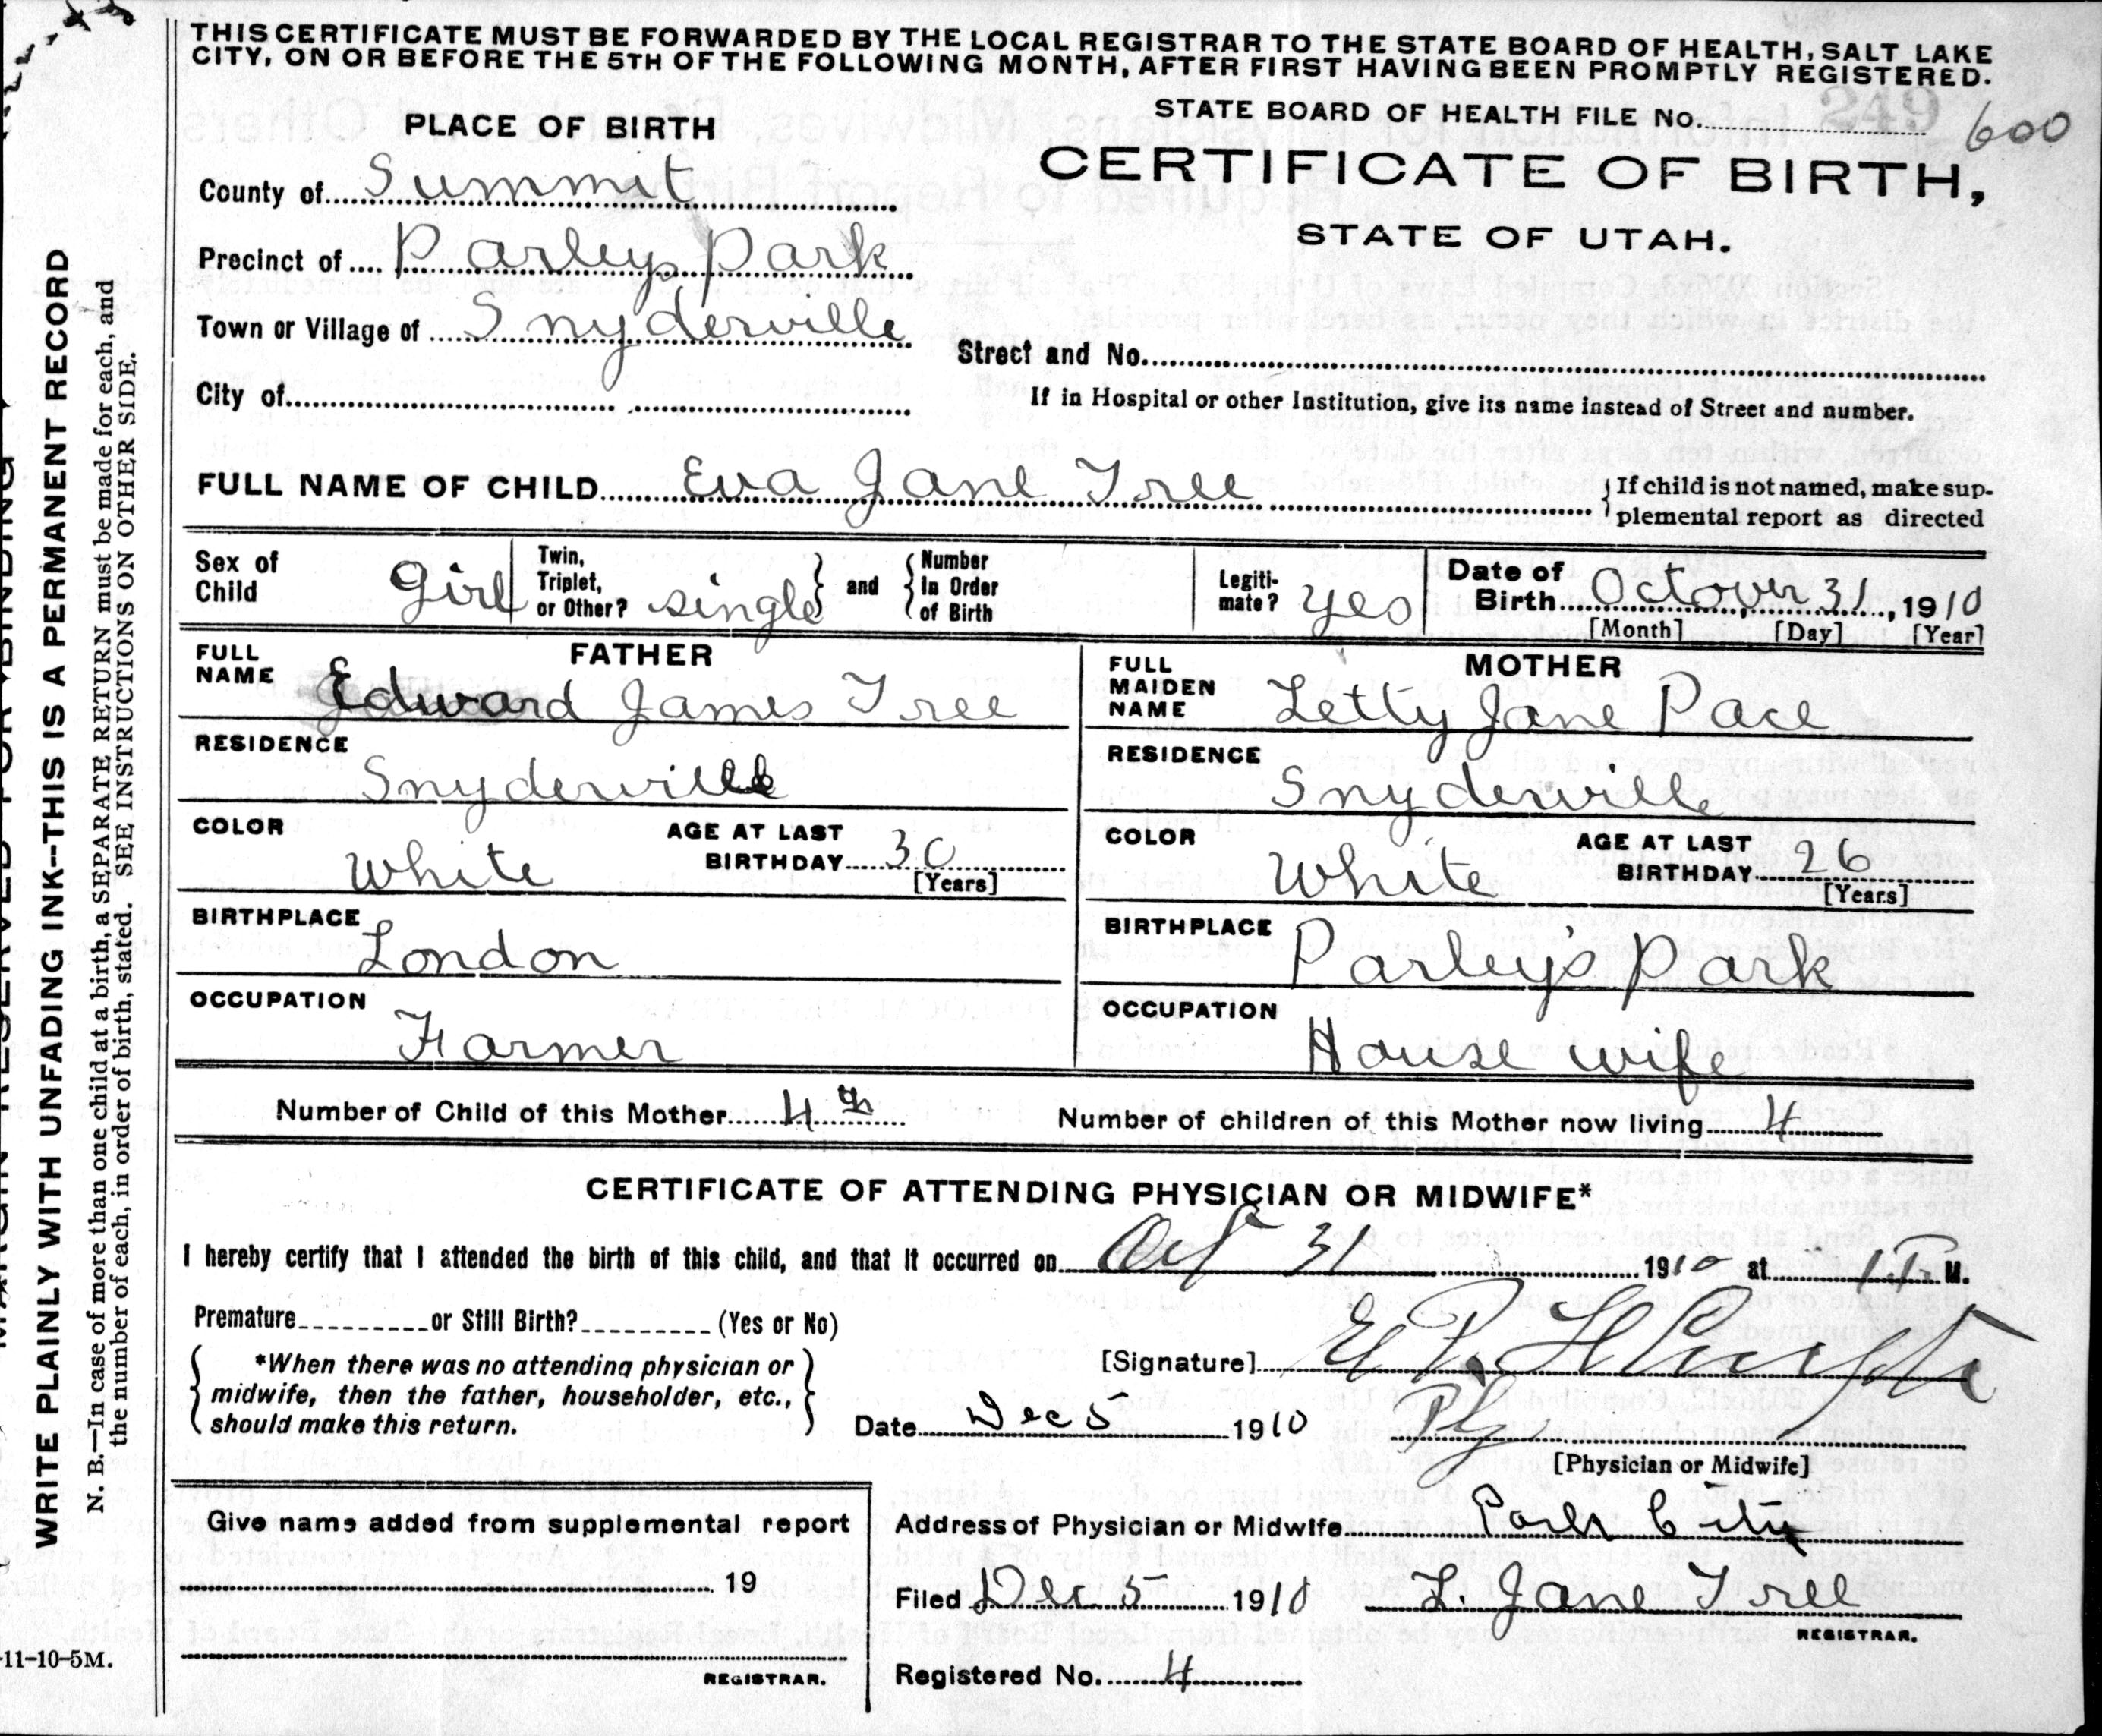 THIS CERTIFICATE MUST BE FORWARDED BY THE LOCAL REGISTRAR TO THE STATE BOARD OF HEALTH, SALT LAKE
CITY, ON OR BEFORE THE 5TH OF THE FOLLOWING MONTH, AFTER FIRST HAVING BEEN PROMPTLY REGISTERED.
STATE BOARD OF HEALTH FILE No. 249 600
PLACE OF BIRTH
CERTIFICATE OF BIRTH,
STATE OF UTAH.
County of Summit
Precinct of Parleys Park
Town or Village of Snyderville
Street and No.
City of
If in Hospital or other Institution, give its name instead of Street and number.
FULL NAME OF CHILD Eva Jane Tree
If child is not named, make sup-
plemental report as directed
Sex of Child girl
Twin, Triplet, or Other? single and Number In Order of Birth
Legiti-mate? yes
Date of Birth October 31, 1910
[Month] [Day] [Year]
FATHER
FULL NAME Edward James Tree
RESIDENCE Snyderville
COLOR White AGE AT LAST BIRTHDAY 30 [Years]
BIRTHPLACE London
OCCUPATION Farmer
MOTHER
FULL MAIDEN NAME Letty Jane Pace
RESIDENCE Snyderville
COLOR White AGE AT LAST BIRTHDAY 26 [Years]
BIRTHPLACE Parley's Park
OCCUPATION House wife
Number of Child of this Mother 4th Number of children of this Mother now living 4
CERTIFICATE OF ATTENDING PHYSICIAN OR MIDWIFE*
I hereby certify that I attended the birth of this child, and that it occurred on Oct 31 1910 at 1 P. M.
Premature or Still Birth? (Yes or No)
*When there was no attending physician or
midwife, then the father, householder, etc.,
should make this return.
[Signature]
Date Dec 5 1910
[Physician or Midwife]
Give name added from supplemental report
19
REGISTRAR.
Address of Physician or Midwife Park City
Filed Dec 5 1910 L. Jane Tree
REGISTRAR.
Registered No. 4
WRITE PLAINLY WITH UNFADING INK--THIS IS A PERMANENT RECORD
N. B.—In case of more than one child at a birth, a SEPARATE RETURN must be made for each, and
the number of each, in order of birth, stated. SEE INSTRUCTIONS ON OTHER SIDE.
-11-10-5M.